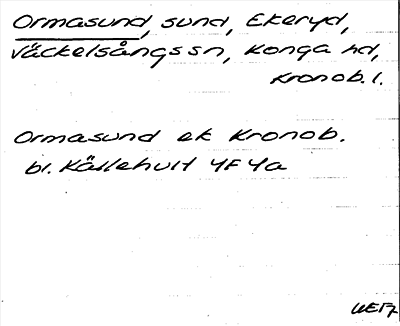 Ormasund, sund, Ekeryd,
Väckelsångs sn, Konga hd,
Kronob. l.
Ormasund ek Kronob.
bl. Källehult 4F 4a